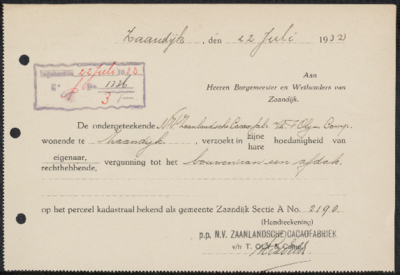 Zaandijk, den 22 Juli 1932
Ingekomen 22 Juli 19
No 1336
Aan
Heeren Burgemeester en Wethouders van
Zaandijk.
De ondergeteekende N.V. Zaanlandsche Cacaofabr. v/h T. Oly en Comp.
wonende te Zaandijk, verzoekt in zijne hoedanigheid van
hare
eigenaar, vergunning tot het bouwen van een afdak
rechthebbende,
op het perceel kadastraal bekend als gemeente Zaandijk Sectie A No. 2190.
(Handteekening)
p.p. N.V. ZAANLANDSCHE CACAOFABRIEK
v/h T. OLY & Comp.